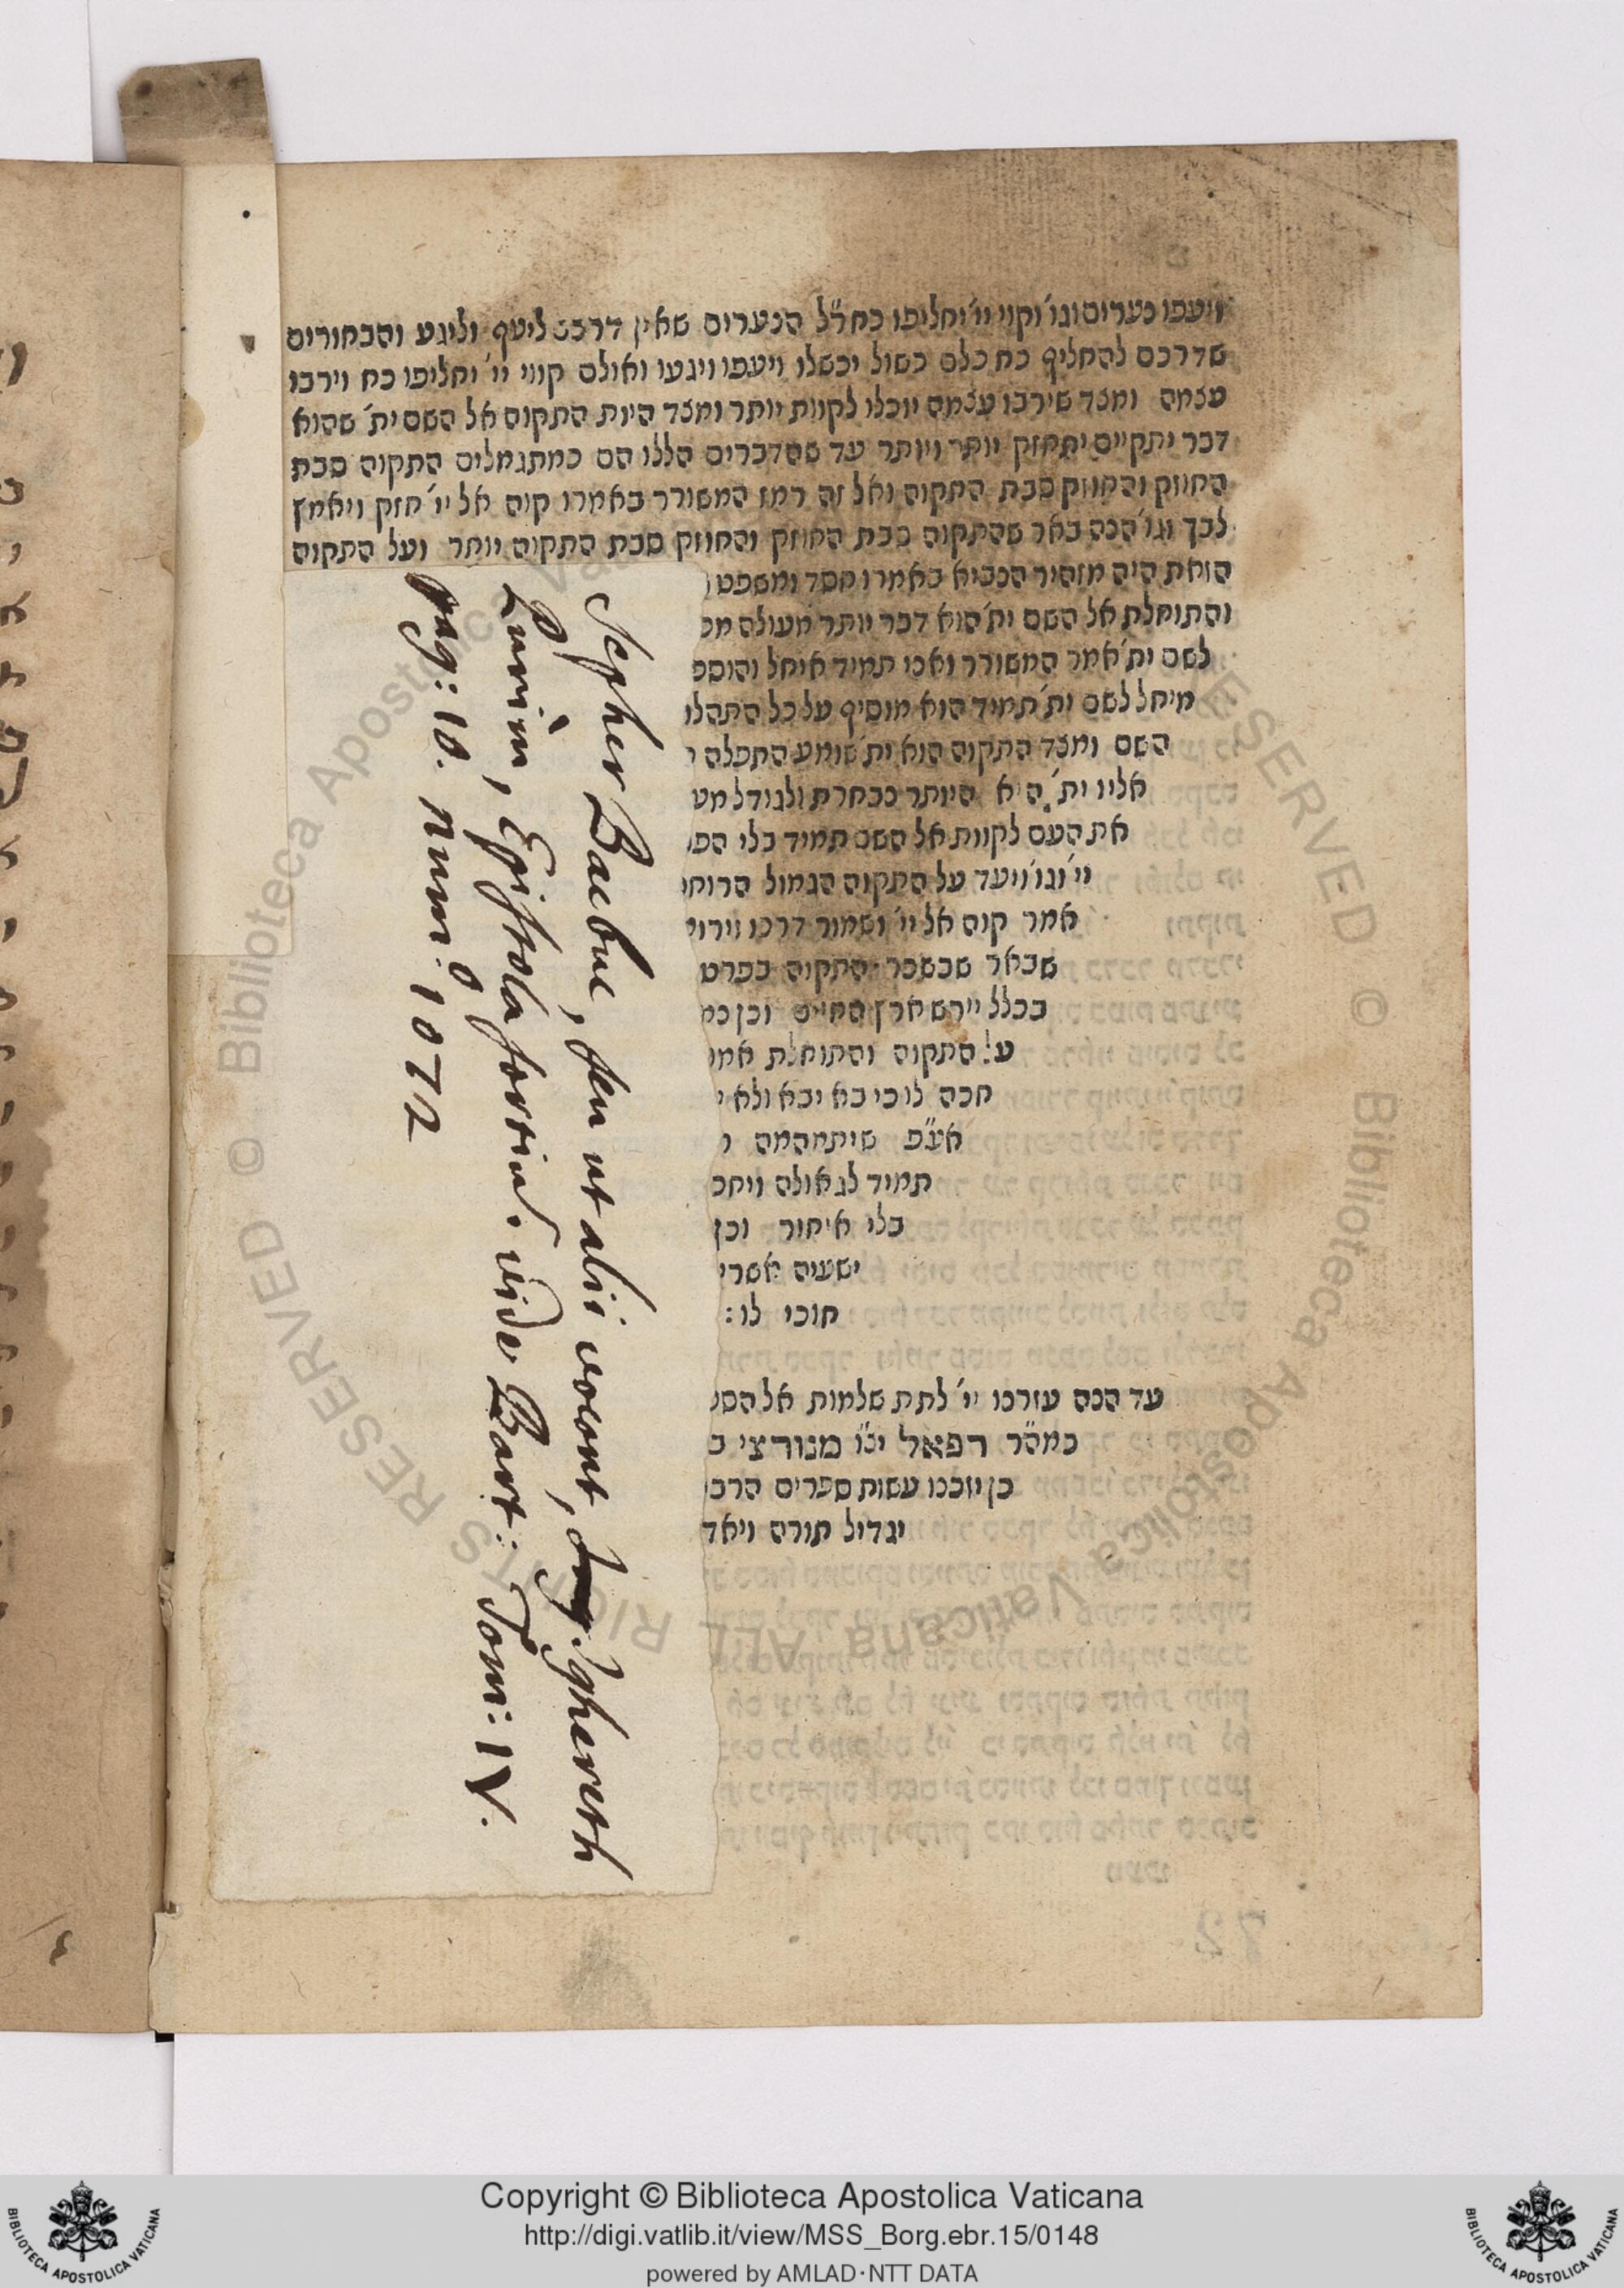 ויעפו נערים וגו' וקוי יי' יחליפו כח ר"ל הנערים שאין דרכם ליעף וליגע והבחורים
שדרכם להחליף כח כלם כשול יכשלו ויעפו ויגעו ואולם קווי יי' יחליפו כח וירבו
עצמה ומצד שירבו עצמה יוכלו לקוות יותר ומצד היות התקוה אל השם ית' שהוא
דבר יתקיים יתחזק יותר ויותר עד שהדברים הללו הם כמתגמלים התקוה סבת
החוזק והחוזק סבת התקוה ואל זה רמז המשורר באמרו קוה אל יי' חזק ויאמץ
לבך וגו' הנה באר שהתקוה סבת החוזק והחוזק סבת התקוה יותר ועל התקוה
הזאת היה מזהיר הנביא באמרו חסד ומשפט
והתוחלת אל השם ית' הוא דבר יותר מעולה
לשם ית' אמר המשורר ואני תמיד איחל והוספ
מיחל לשם ית' תמיד הוא מוסיף על כל התהלו
השם ומצד התקוה הוא ית' שומע התפלה
אליו ית' היא היותר נבחרת ולגודל מע
את העם לקוות אל השם תמיד בלי הפ
יי' וגו' ויעד על התקוה הגמול הרוח
אמר קוה אל יי' ושמור דרכו וירומ
שבאר שבשכר התקוה בפרט
בכלל יירש ארץ החיים וכן כמ
על התקוה והתוחלת אמ
חכה לו כי בא יבא ולא י
אע"פ שיתמהמה
תמיד לגאולה ויחכ
בלי איחור וכן
ישעיה אשרי
חוכי לו:
עד הנה עזרנו יי' לתת שלמות אל הס
כמה"ר רפאל יצ"ו מנורצי ב
כן יזכנו עשות ספרים הרב
יגדיל תורה ויאד
Sepher Bacbuc, seu ut alii volunt, Ighereth
Purim, Epistola sortium. vide Bart: Tom: IV.
pag: 10. num.º 1072
Copyright © Biblioteca Apostolica Vaticana
http://digi.vatlib.it/view/MSS_Borg.ebr.15/0148
powered by AMLAD·NTT DATA